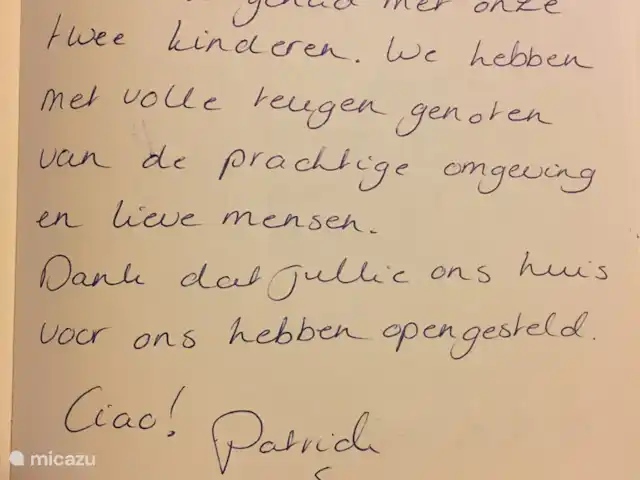 gehad met onze
twee kinderen. We hebben
met volle teugen genoten
van de prachtige omgeving
en lieve mensen.
Dank dat jullie ons huis
voor ons hebben opengesteld.
Ciao! Patrick
micazu